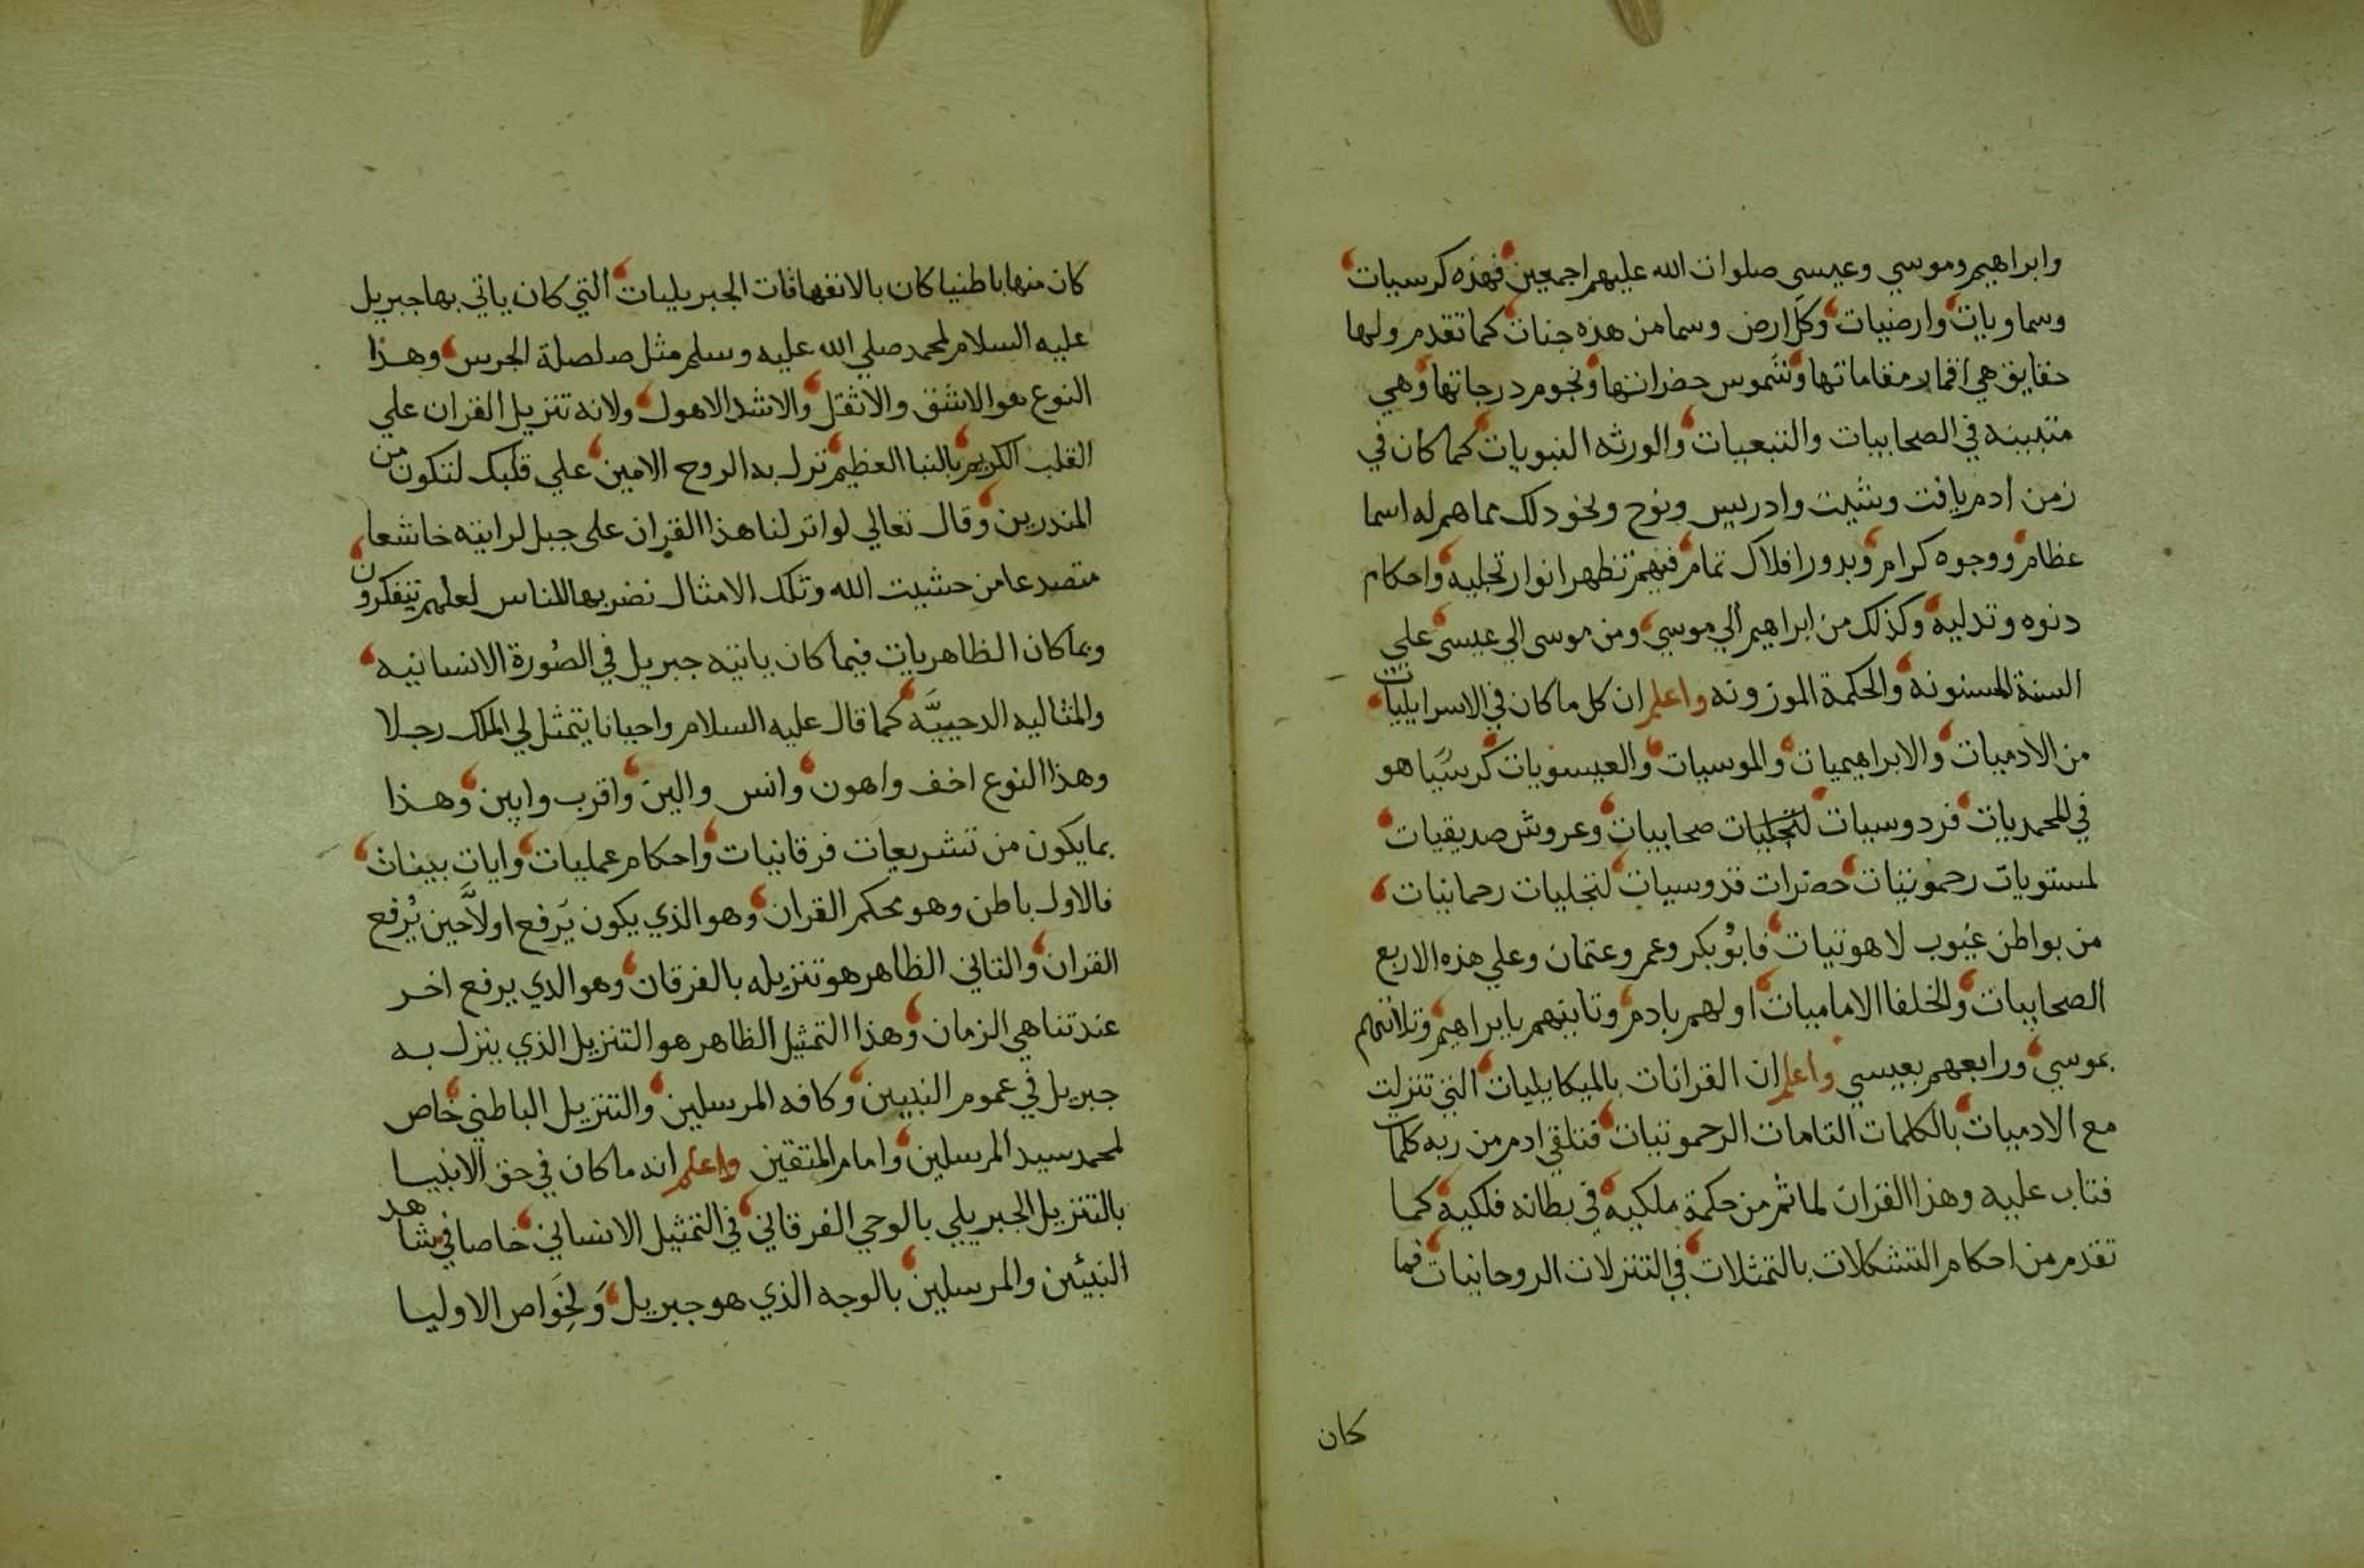 وابراهيم وموسي وعيسى صلوات الله عليهم اجمعين فهذه كرسيات
وسماويات وارضيات وكل ارض وسما من هذه جنات كما تقدم ولها
حقايق هي اقمار مقاماتها وشموس حضراتها ونجوم درجاتها وهي
متبينه في الصحابيات والتبعيات والورثه النبويات كما كان في
زمن ادم يافت وشيث وادريس ونوح ونحو ذلك مما هم له اسما
عظام ووجوه كرام وبدور افلاك تمام فبهم تظهر انوار تجليه واحكام
دنوه وتدليه وكذلك من ابراهيم الي موسي ومن موسى الي عيسى علي
السنة المسنونه والحكمة الموزونه واعلم ان كل ما كان في الاسرايليات
من الادميات والابراهيميات والموسيات والعيسويات كرسيا هو
في المحمديات فردوسيات لتجليات صحابيات وعروش صديقيات
لمستويات رحموتيات حضرات قدوسيات لتجليات رحمانيات
من بواطن غيوب لاهوتيات فابو بكر وعمر وعثمان وعلي هذه الاربع
الصحابيات والخلفا الاماميات اولهم بادم وثانيهم بابراهيم وثلاثتهم
بموسي ورابعهم بعيسي واعلم ان القرانات بالميكاييليات التي تنزلت
مع الادميات بالكلمات التامات الرحموتيات فتلقي ادم من ربه كلمات
فتاب عليه وهذا القران لما ثم من حكمة ملكيه في بطانه فلكية كما
تقدم من احكام التشكلات بالتمثلات في التنزلات الروحانيات فما
كان
كان منها باطنيا كان بالانفهاقات الجبريليات التي كان ياتي بها جبريل
عليه السلام لمحمد صلي الله عليه وسلم مثل صلصلة الجرس وهذا
النوع هو الاشق والاثقل والاشد الاهول ولانه تنزيل القران علي
القلب الكريم بالنبا العظيم نزل به الروح الامين علي قلبك لتكون من
المنذرين وقال تعالي لو انزلنا هذا القران على جبل لرايته خاشعا
متصدعا من خشيت الله وتلك الامثال نضربها للناس لعلهم يتفكرون
وبما كان الظاهريات فيما كان ياتيه جبريل في الصورة الانسانيه
والمثاليه الدحييَّه كما قال عليه السلام واحيانا يتمثل لي الملك رجلا
وهذا النوع اخف واهون وانس والين واقرب وابين وهذا
بما يكون من تشريعات فرقانيات واحكام عمليات وايات بينات
فالاول باطن وهو محكم القران وهو الذي يكون يَرفع اولاً حين يُرفع
القران والثاني الظاهر هو تنزيله بالفرقان وهو الذي يرفع اخر
عند تناهي الزمان وهذا التمثيل الظاهر هو التنزيل الذي ينزل به
جبريل في عموم النبيين وكافه المرسلين والتنزيل الباطني خاص
لمحمد سيد المرسلين وامام المتقين واعلم انه ما كان في حق الانبيا
بالتنزيل الجبريلي بالوحي الفرقاني في التمثيل الانساني خاصا في شاهد
النبيّين والمرسلين بالوجه الذي هو جبريل وَلِخَواص الاوليا